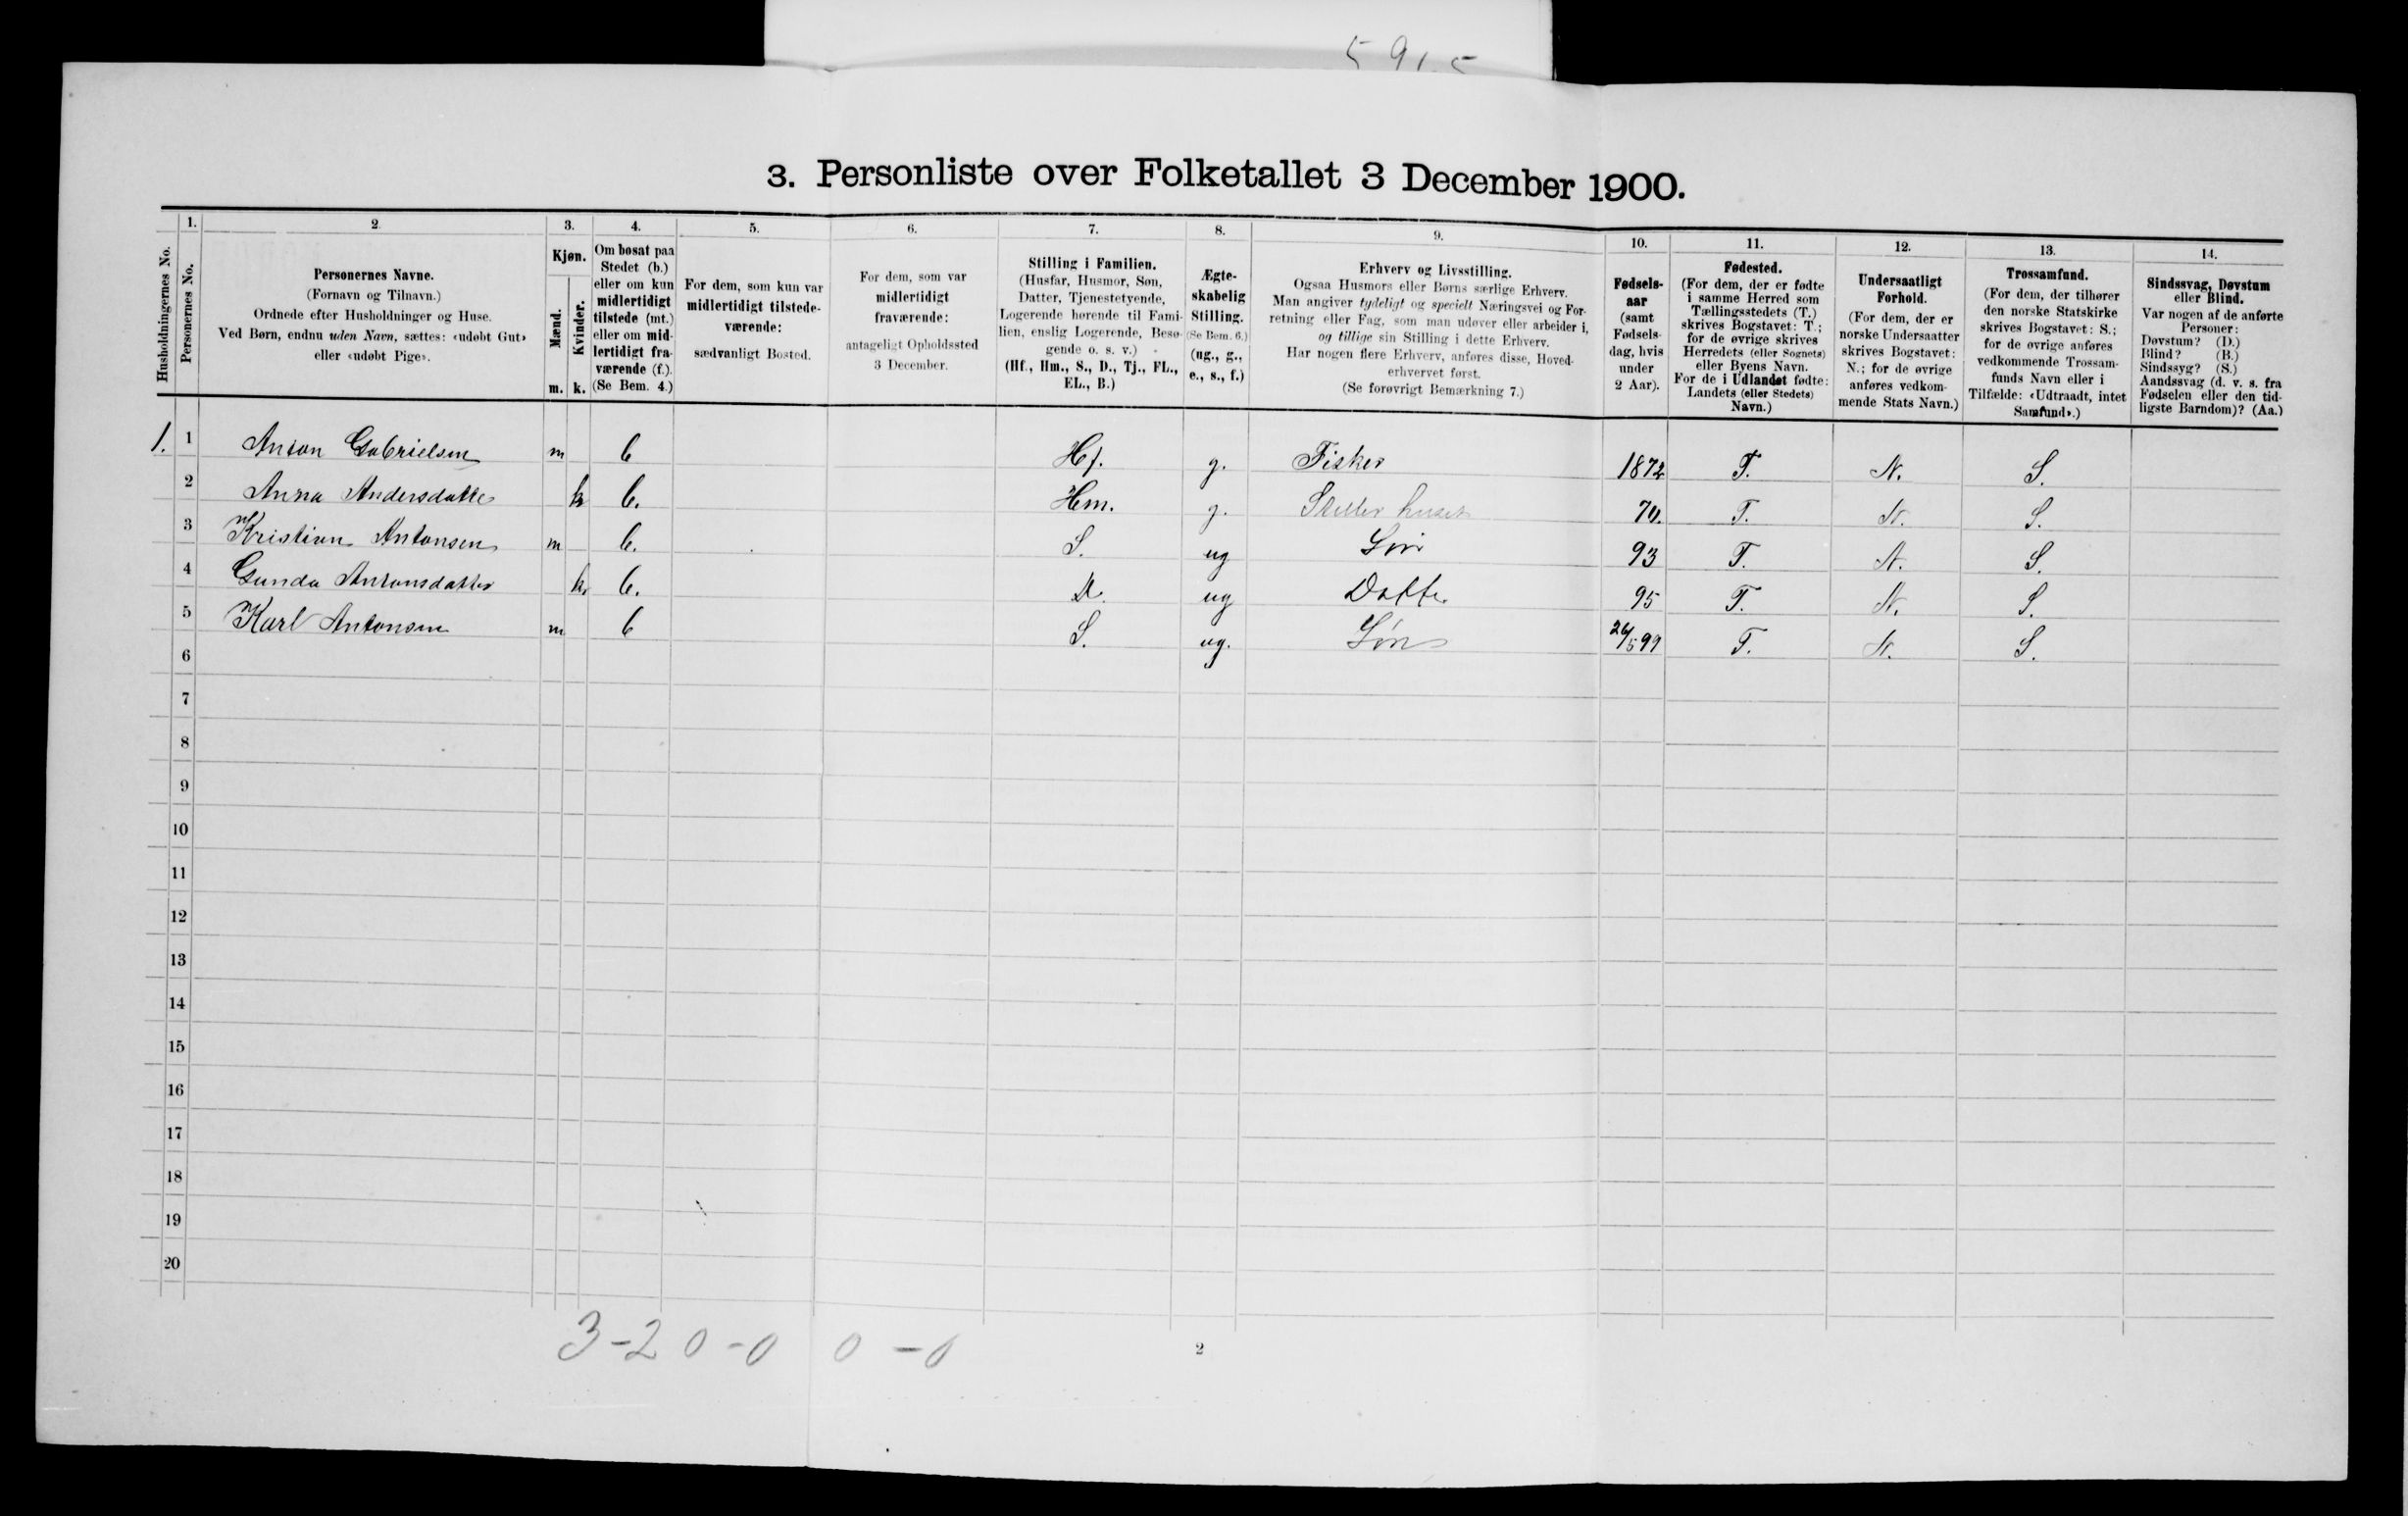 5 9 1 5
3. Personliste over Folketallet 3 December 1900.
Husholdningernes No.
1.
Personernes No.
2
Personernes Navne.
(Fornavn og Tilnavn.)
Ordnede efter Husholdninger og Huse.
Ved Børn, endnu uden Navn, sættes: «udøbt Gut»
eller «udøbt Pige».
3.
Kjøn.
Mænd.
Kvinder.
m. k.
4.
Om bosat paa
Stedet (b.)
eller om kun
midlertidigt
tilstede (mt.)
eller om mid-
lertidigt fra-
værende (f.).
(Se Bem. 4.)
5.
For dem, som kun var
midlertidigt tilstede-
værende:
sædvanligt Bosted.
6.
For dem, som var
midlertidigt
fraværende:
antageligt Opholdssted
3 December.
7.
Stilling i Familien.
(Husfar, Husmor, Søn,
Datter, Tjenestetyende,
Logerende hørende til Fami-
lien, enslig Logerende, Besø-
gende o. s. v.)
(Hf., Hm., S., D., Tj., FL.,
EL., B.)
8.
Ægte-
skabelig
Stilling.
(Se Bem. 6.)
(ug., g.,
e., s., f.)
9.
Erhverv og Livsstilling.
Ogsaa Husmors eller Børns særlige Erhverv.
Man angiver tydeligt og specielt Næringsvei og For-
retning eller Fag, som man udøver eller arbeider i,
og tillige sin Stilling i dette Erhverv.
Har nogen flere Erhverv, anføres disse, Hoved-
erhvervet først.
(Se forøvrigt Bemærkning 7.)
10.
Fødsels-
aar
(samt
Fødsels-
dag, hvis
under
2 Aar).
11.
Fødested.
(For dem, der er fødte
i samme Herred som
Tællingsstedets (T.)
skrives Bogstavet: T.;
for de øvrige skrives
Herredets (eller Sognets)
eller Byens Navn.
For de i Udlandet fødte:
Landets (eller Stedets)
Navn.)
12.
Undersaatligt
Forhold.
(For dem, der er
norske Undersaatter
skrives Bogstavet:
N.; for de øvrige
anføres vedkom-
mende Stats Navn.)
13.
Trossamfund.
(For dem, der tilhører
den norske Statskirke
skrives Bogstavet: S.;
for de øvrige anføres
vedkommende Trossam-
funds Navn eller i
Tilfælde: «Udtraadt, intet
Samfund».)
14.
Sindssvag, Døvstum
eller Blind.
Var nogen af de anførte
Personer:
Døvstum? (D.)
Blind? (B.)
Sindssyg? (S.)
Aandssvag (d. v. s. fra
Fødselen eller den tid-
ligste Barndom)? (Aa.)
1. 1 Anton Gabrielsen m b Hf. g. Fisker 1872 T. N. S.
2 Anna Andersdatter k b. Hm. g. Steller huset 70. T. N. S.
3 Kristian Antonsen m b. S. ug Søn 93 T. N. S.
4 Gunda Antonsdatter k b. D. ug Datter 95 T. N. S.
5 Karl Antonsen m b S. ug. Søn 26/5 99 T. N. S.
6
7
8
9
10
11
12
13
14
15
16
17
18
19
20
3-2 0-0 0-0
2